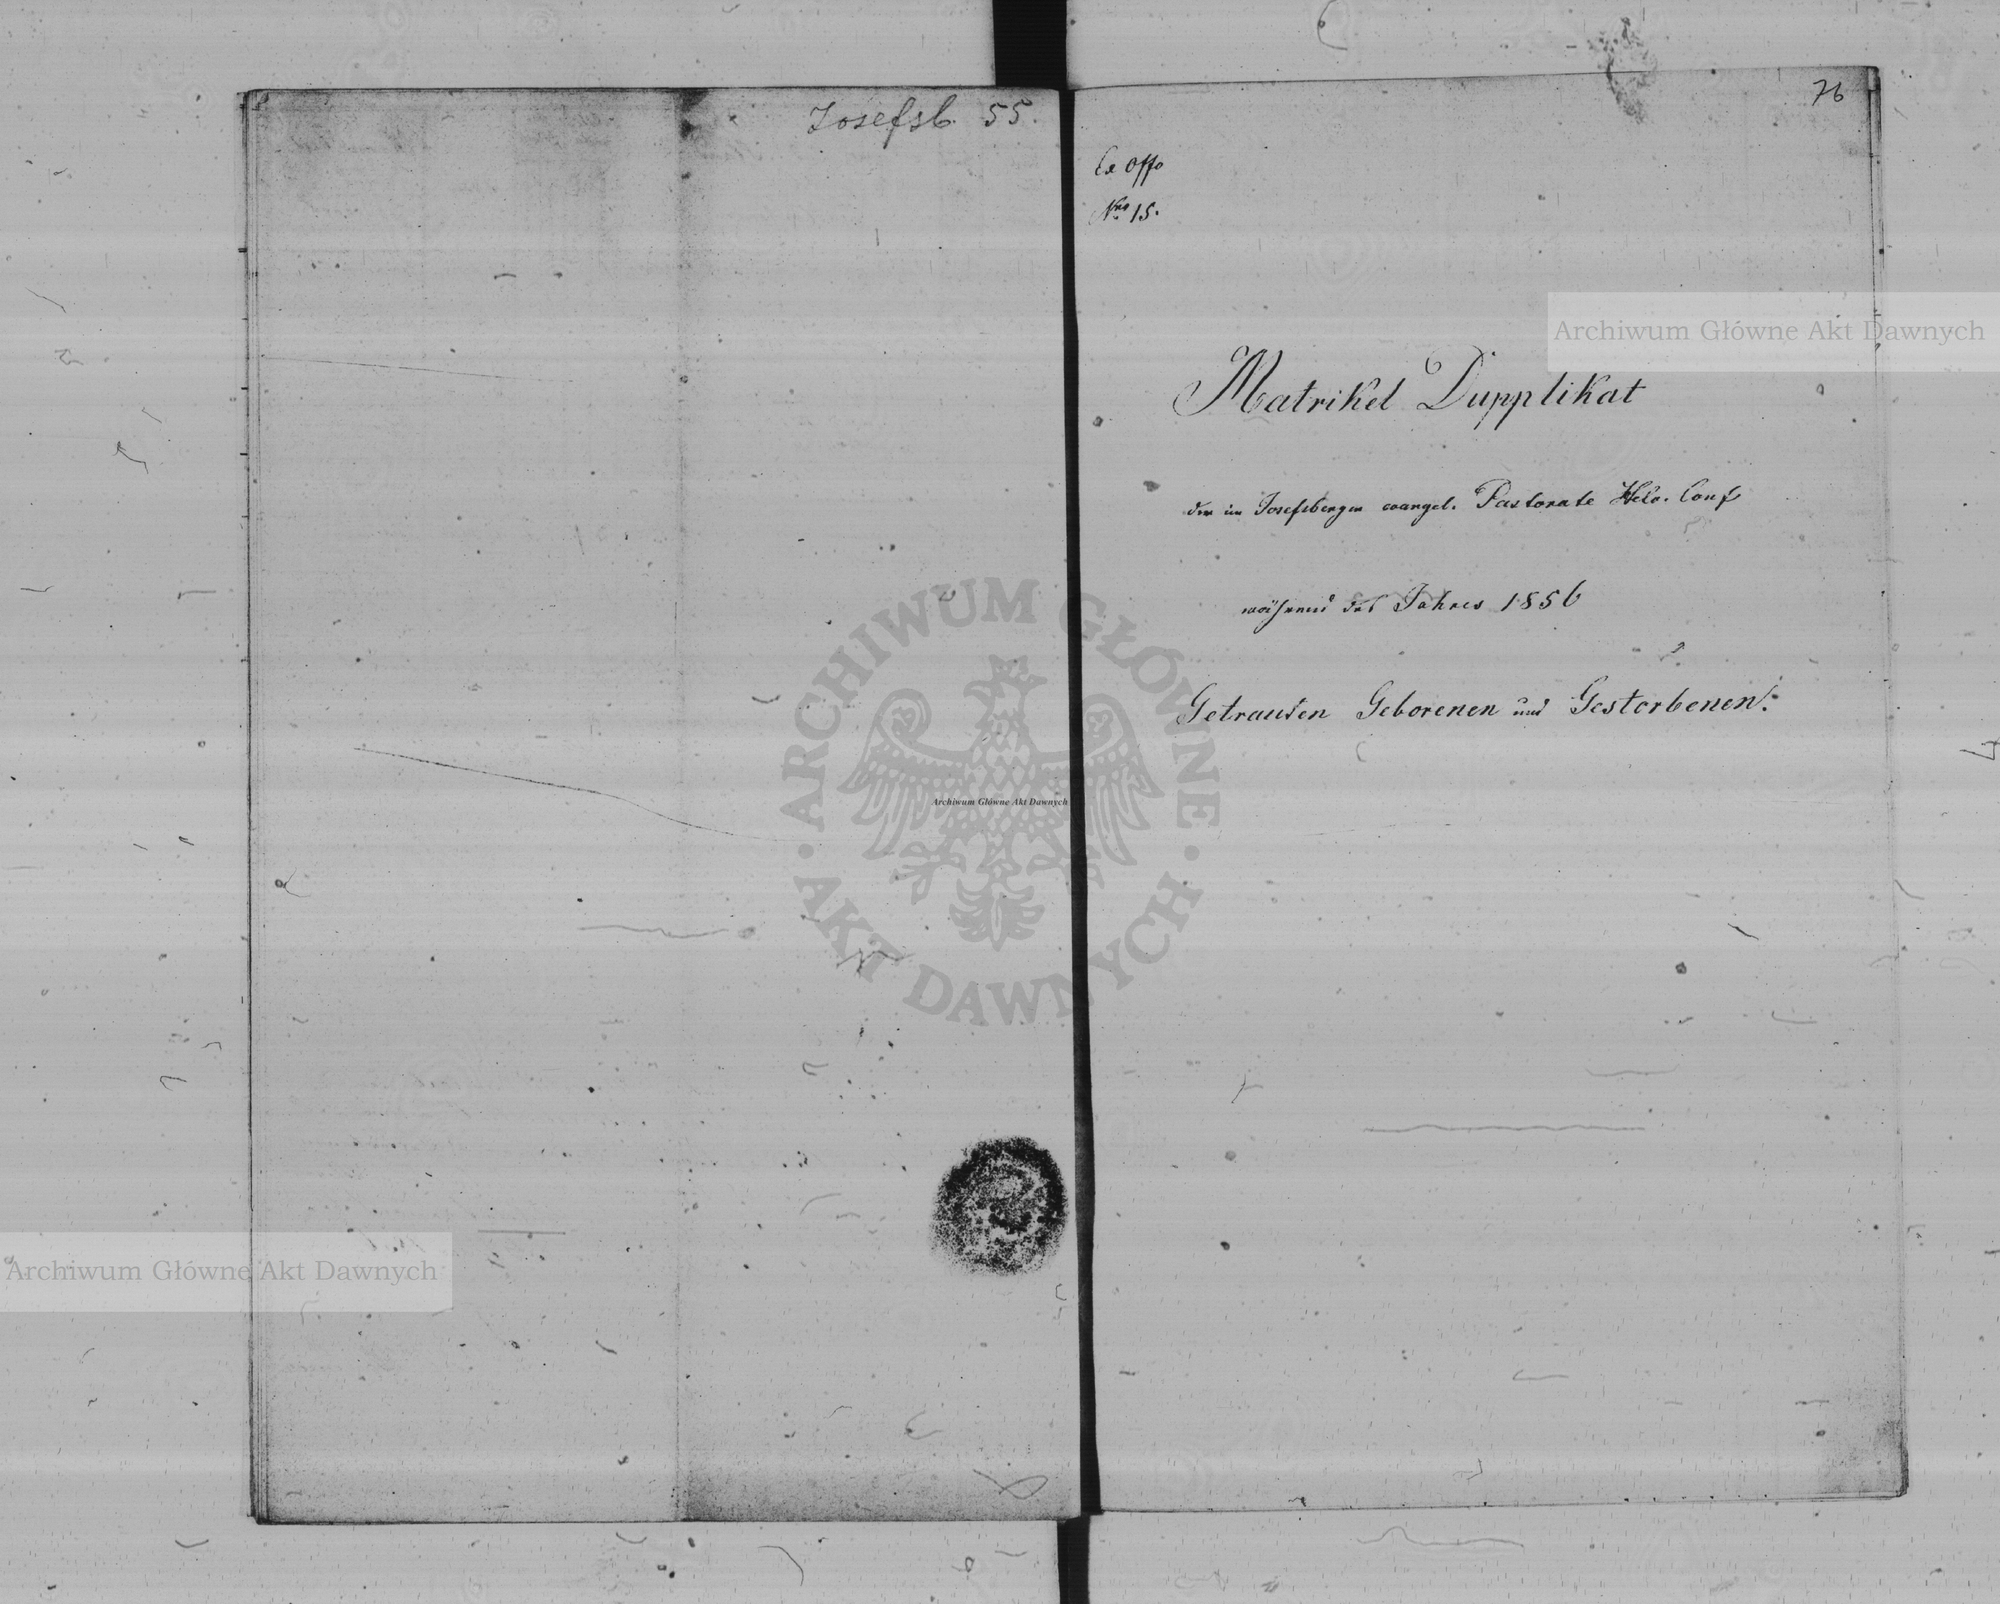 Josefsb. 55.
76
Ex offo
Nro 15.
Archiwum Główne Akt Dawnych
Matrikel Dupplikat
der im Josefsberger evangel. Pastorate Helv. Conf
während des Jahres 1856
Getrauten Geborenen und Gestorbenen.
ARCHIWUM GŁÓWNE AKT DAWNYCH
Archiwum Główne Akt Dawnych
Archiwum Główne Akt Dawnych